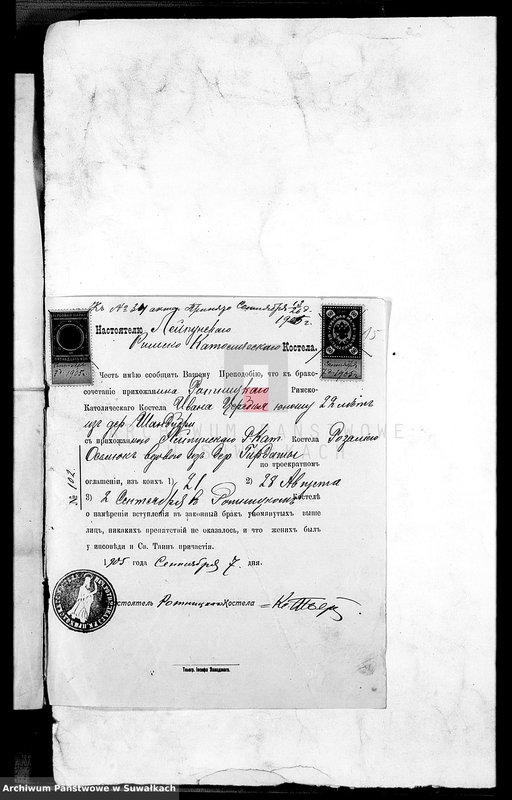 Къ № 34 акта. Принято Сентября
1905 г.
Настоятелю Лейпунскаго
Римско Католическаго Костела.
Честь имѣю сообщить Вашему Преподобію, что къ брако-
сочетанію прихожанина Ротницкаго Римско-
Католическаго Костела Ивана юношу 22 лѣтъ
изъ дер.
съ прихожанкою Лейпунскаго Р. Кат. Костела Розалію
вдовою изъ дер.
по троекратномъ
оглашеніи, изъ коихъ 1) 21 2) 28 Августа
3) 2 Сентября въ Ротницкомъ Костелѣ
о намѣреніи вступленія въ законный бракъ упомянутыхъ выше
лицъ, никакихъ препятствій не оказалось, и что женихъ былъ
у исповѣди и Св. Таинъ причастія.
1905 года Сентября 7 дня.
Настоятель Ротницкаго Костела
№ 102
15
Типогр. Іосифа Завадзкаго.
ARCHIWUM PAŃSTWOWE
W SUWAŁKACH
Archiwum Państwowe w Suwałkach